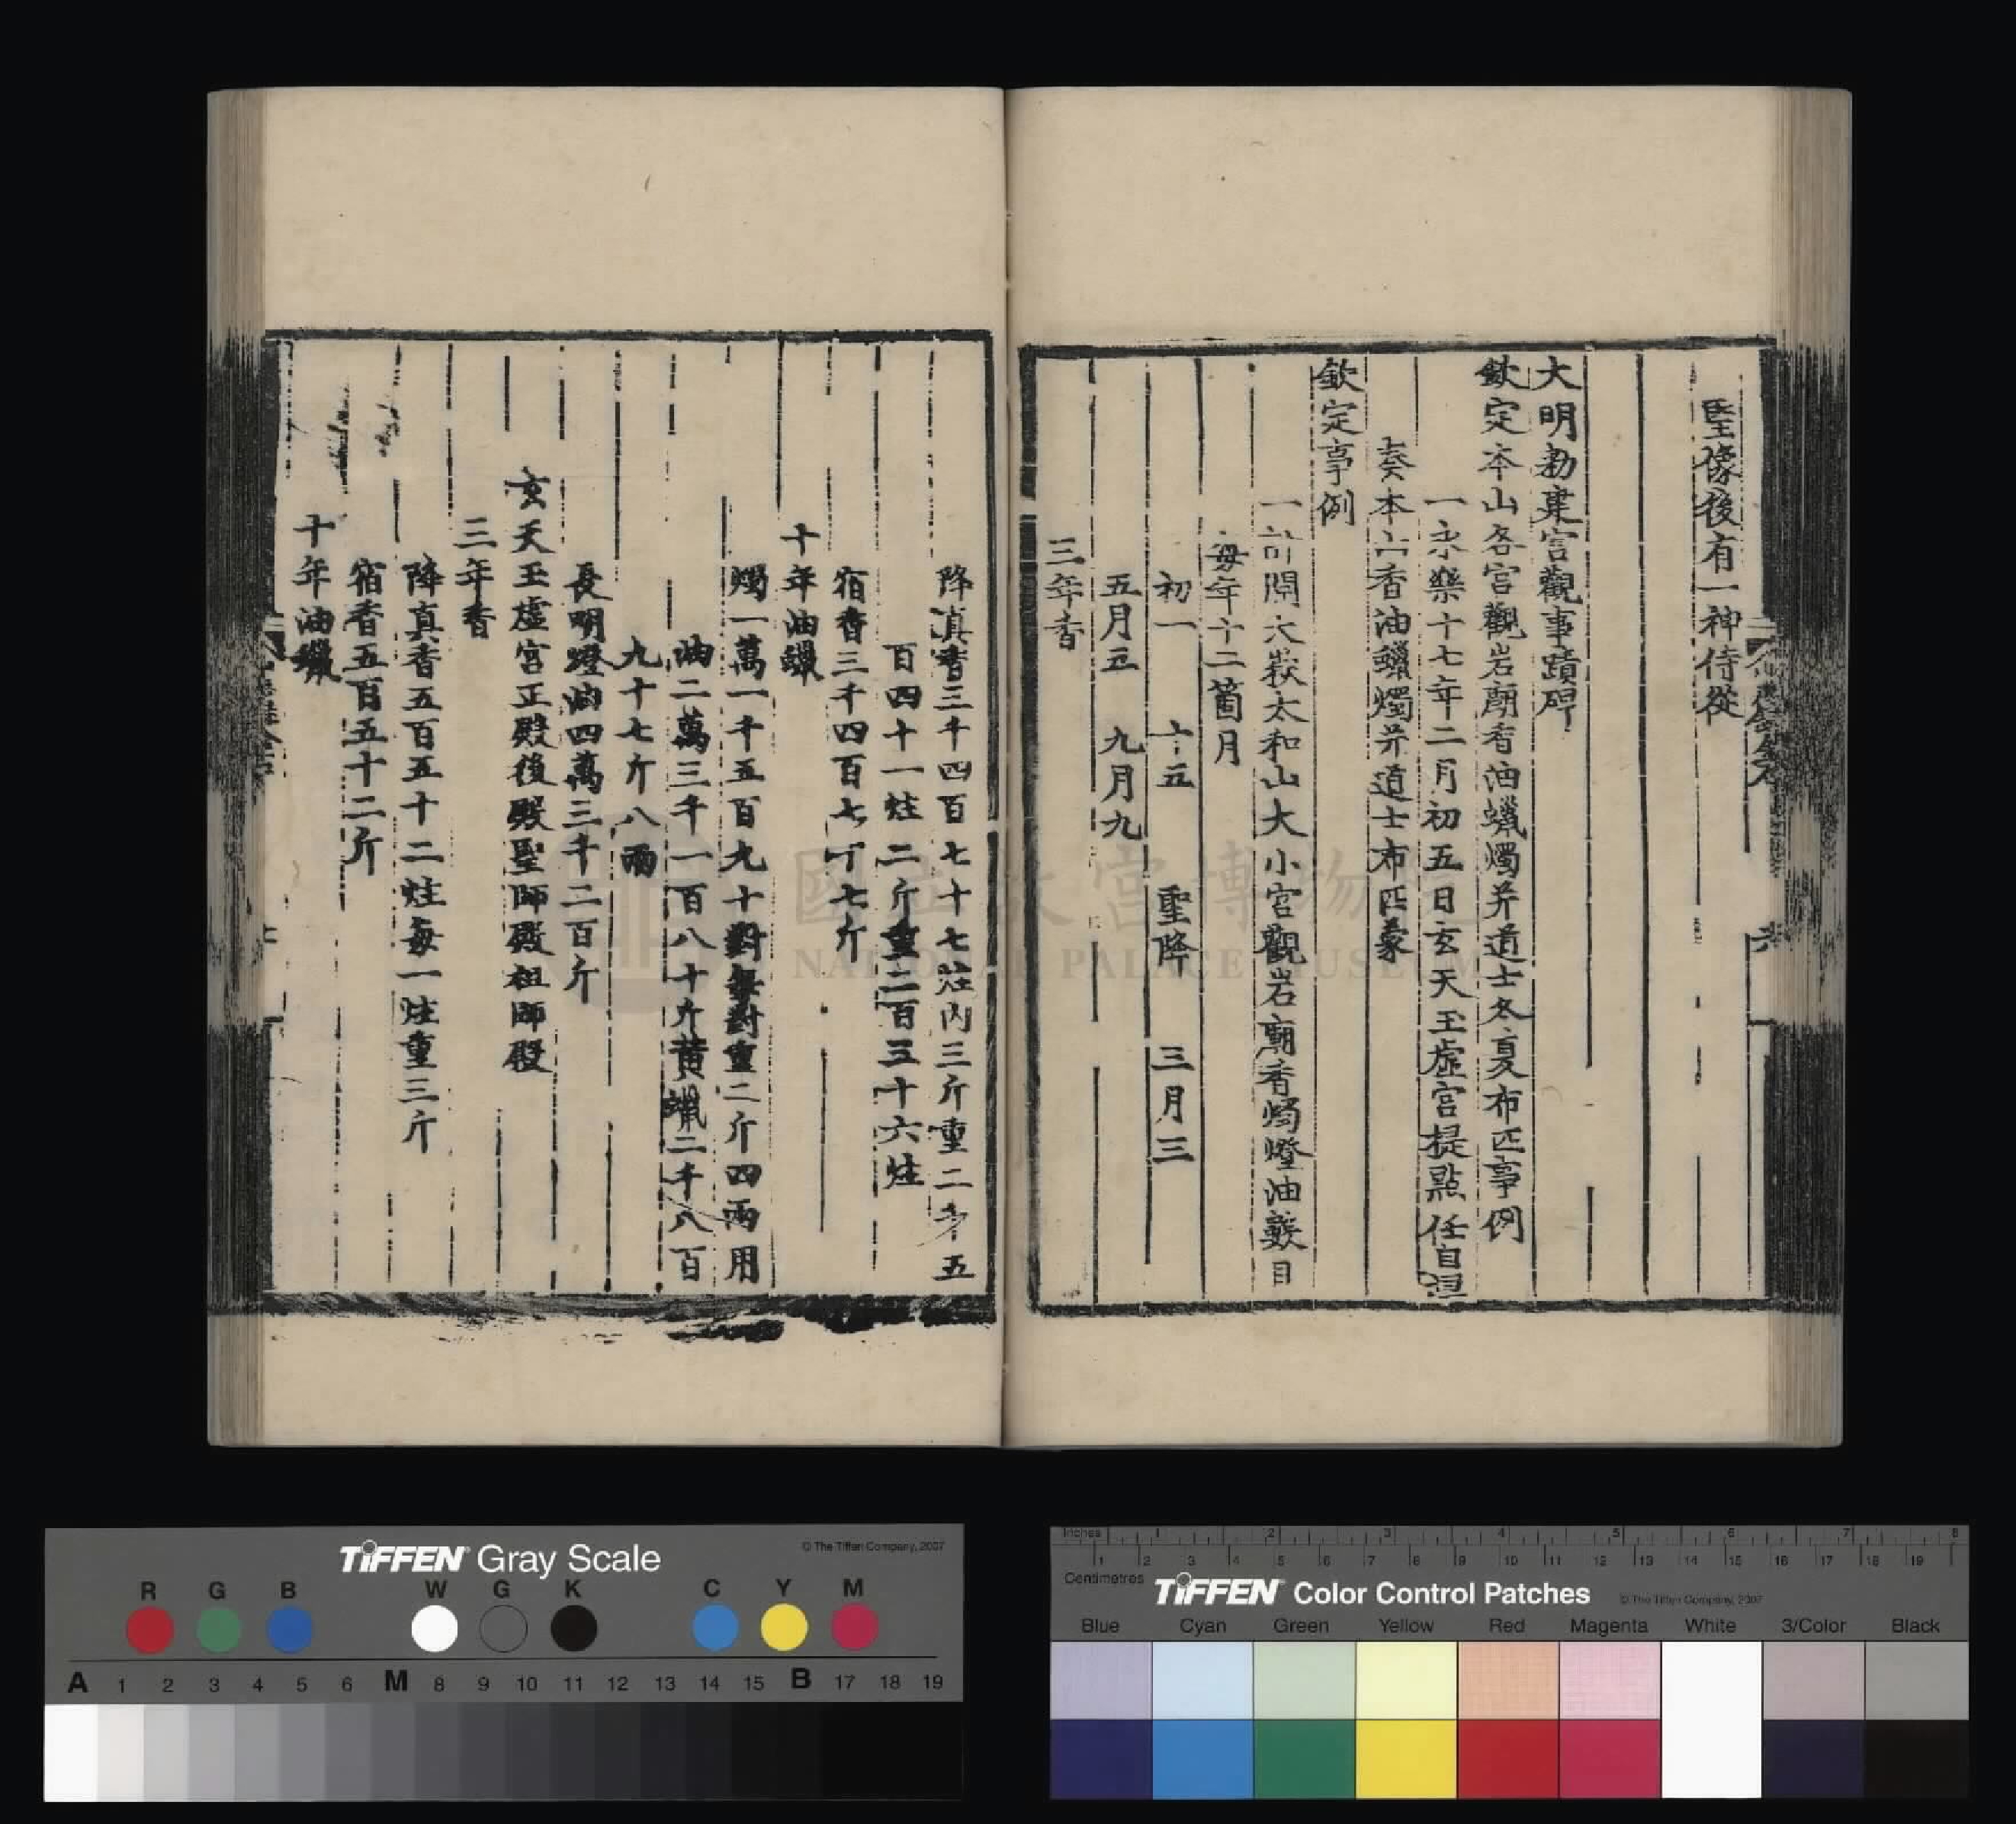 聖像後有一神侍從
大明勑建宮觀事蹟碑
欽定本山各宮觀岩廟香油蠟燭并道士冬夏布匹事例
一永樂十七年二月初五日玄天玉虛宮提點任自湿
奏本山香油蠟燭并道士布匹蒙
欽定事例
一計開大嶽太和山大小宮觀岩廟香燭燈油數目
每年十二箇月
初一 十五 聖降 三月三
五月五 九月九
三年香
降真香三千四百七十七炷內三斤重二千五
百四十一炷二斤重二百五十六炷
宿香三千四百七十七斤
十年油蠟
燭一萬一千五百九十對每對重二斤四兩用
油二萬三千一百八十斤黃蠟二千八百
九十七斤八兩
長明燈油四萬三千二百斤
玄天玉虛宮正殿後殿聖師殿祖師殿
三年香
降真香五百五十二炷每一炷重三斤
宿香五百五十二斤
十年油蠟
國立故宮博物院
NATIONAL PALACE MUSEUM
TIFFEN Gray Scale
© The Tiffen Company, 2007
R G B W G K C Y M
A 1 2 3 4 5 6 M 8 9 10 11 12 13 14 15 B 17 18 19
Inches 1 2 3 4 5 6 7 8
1 2 3 4 5 6 7 8 9 10 11 12 13 14 15 16 17 18 19
Centimetres
TIFFEN Color Control Patches
© The Tiffen Company, 2007
Blue Cyan Green Yellow Red Magenta White 3/Color Black